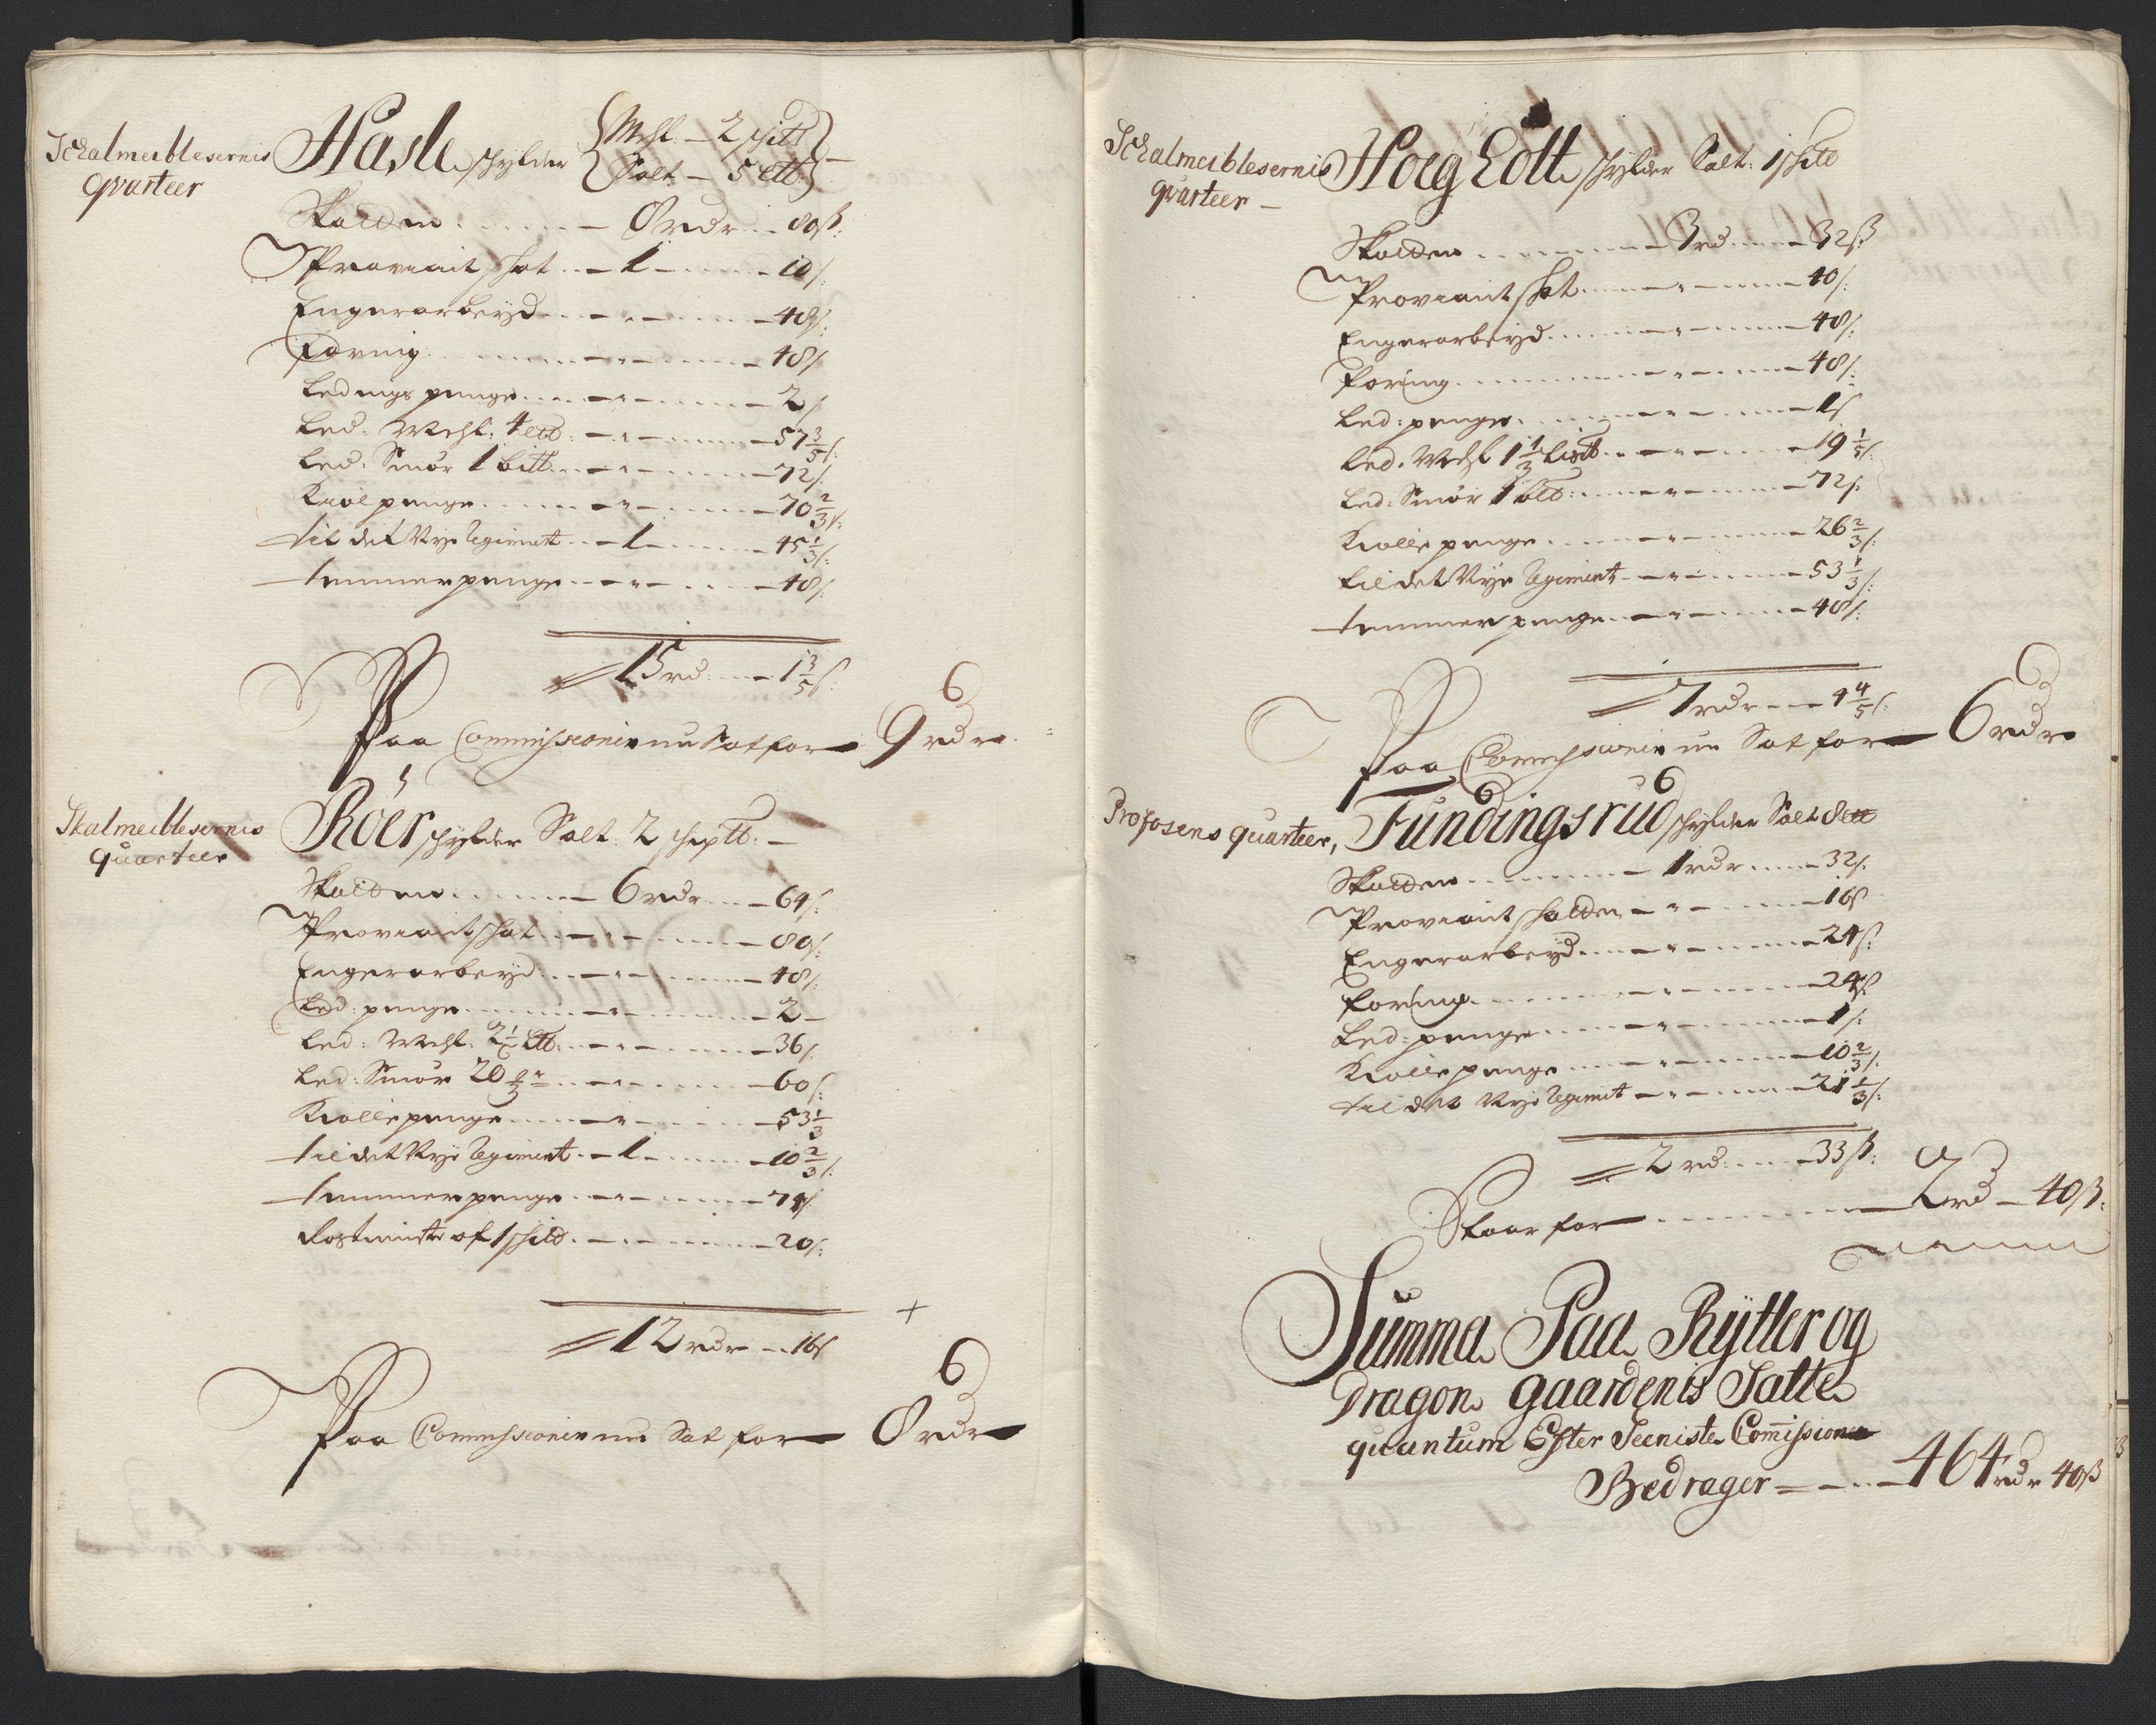 Schalmeiblesernis
qvarteer
Hasle schylder Mehl — 2 schit
Salt — 5 Ltt
Skatten — 8 rdr — 80 ß
Proviant skat — 1 — 10 ß
Engerarbeyd — 48 ß
Foring — 48 ß
Ledings penge — 2 ß
Led. Mehl: 4 Ltt — 57 3/5 ß
Led. Smör 1 bitt — 72 ß
Kuolpenge — 70 2/3 ß
til det Nye Regiment — 1 — 45 1/3 ß
tømmerpenge — 48 ß
15 rd — 1 3/5 ß
Paa Commissionen nu Sat for — 9 rdr
Skalmeiblesernis
quarteer
Röer schylder Salt: 2 schptt
Skatten — 6 rdr — 64 ß
Proviant skat — 80 ß
Engerarbeyd — 48 ß
Led: penge — 2 —
Led: Mehl: 2 1/2 Ltt — 36 ß
Led: Smör 20 — 60 ß
Kuollepenge — 53 1/3
til det Nye Regiment — 1 — 10 2/3 ß
tømmerpenge — 74 ß
af 1 schitt — 20 ß
12 rdr — 16 ß
Paa Commissionen nu Sat for — 8 rdr
Schalmeiblesernis
qvarteer —
Hoeg Eolt schylder Salt: 1 schitt
Skatten — 3 rd — 32 ß
Proviant skat — 40 ß
Engerarbeyd — 48 ß
Foring — 48 ß
Led: penge — 1 ß
Led. Mehl 1 1/3 Lisb — 19 1/5 ß
Led: Smör 1 btt — 72 ß
Kuolle penge — 26 2/3 ß
til det Nye Regiment — 53 1/3 ß
tømmer penge — 48 ß
7 rdr — 4 4/5 ß
Paa Commissionen nu Sat for — 6 rdr
Profosens quarteer, Fundingsrud schylder Salt 8 Ltt
Skatten — 1 rdr — 32 ß
Proviant skatten — 16 ß
Engerarbeyd — 24 ß
Foring — 24 ß
Led: penge — 1 ß
Kuolle penge — 10 2/3 ß
til det Nye Regiment — 21 1/3 ß
2 rd — 33 ß
Staar for — 2 rd — 40 ß
Summa Paa Rÿtter og
Dragon gaardenis Satte
quantum Efter Seeniste Comission
Bedrager — 464 rdr 40 ß